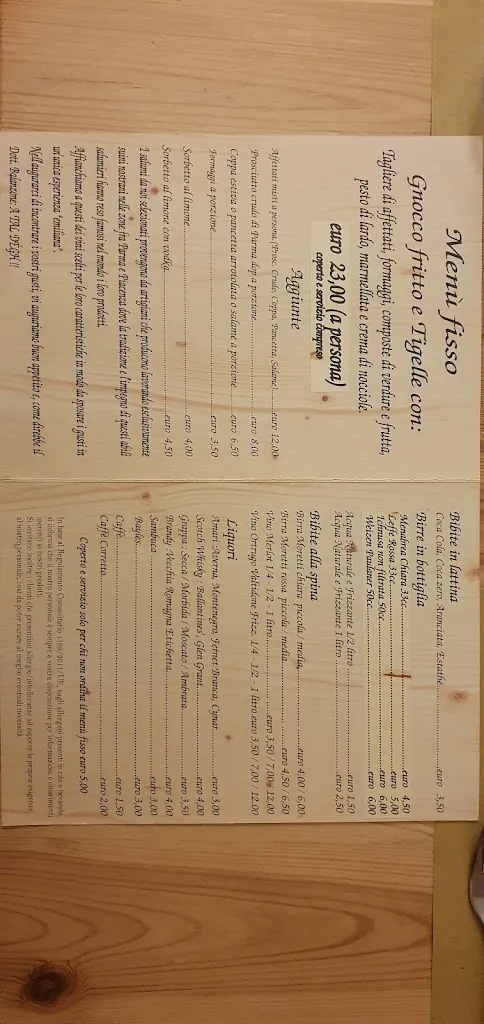 Menù fisso
Gnocco fritto e Tigelle con:
Tagliere di affettati, formaggi, composte di verdure e frutta,
pesto di lardo, marmellata e crema di nocciole.
euro 23,00 (a persona)
coperto e servizio compreso
Aggiunte
Affettati misti a persona, (Prosc. Crudo, Coppa, Pancetta, Salame)........euro 12,00
Prosciutto crudo di Parma dop a porzione........euro 8,00
Coppa estiva o pancetta arrotolata o salame a porzione........euro 6,50
Formaggi a porzione........euro 3,50
Sorbetto al limone........euro 4,00
Sorbetto al limone con vodka........euro 4,50
I salumi da noi selezionati provengono da artigiani che producono lavorando esclusivamente
suini nostrani nelle zone fra Parma e Piacenza dove la tradizione e l'impegno di questi abili
salumieri hanno reso famosi nel mondo i loro prodotti.
Affianchiamo a questi dei vini scelti per le loro caratteristiche in modo da sposare i gusti in
un'unica esperienza "emiliana".
Nell'augurarci di incontrare i vostri gusti, vi auguriamo buon appetito e, come direbbe il
Dott. Balanzone: A TAL DEGH !!
Bibite in lattina
Coca Cola, Coca zero, Aranciata, Estathè........euro 3,50
Birre in bottiglia
Menabrea Chiara 33cc........euro 4,50
Leffe Rossa 33cc........euro 5,00
Ichnusa non filtrata 50cc........euro 6,00
Weizen Paulaner 50cc........euro 6,00
Acqua Naturale e Frizzante 1/2 litro........euro 1,50
Acqua Naturale e Frizzante 1 litro........euro 2,50
Bibite alla spina
Birra Moretti chiara piccola / media........euro 4,00 / 6,00
Birra Moretti rossa piccola / media........euro 4,50 / 6,50
Vino Merlot 1/4 - 1/2 - 1 litro........euro 3,50 / 7,00 / 12,00
Vino Ortrugo Valtidone Frizz. 1/4 - 1/2 - 1 litro.euro 3,50 / 7,00 / 12,00
Liquori
Amari: Averna, Montenegro, Fernet Branca, Cynar........euro 3,00
Scotch Whisky: Ballantines', Glen Grant........euro 4,00
Grappa: Secca / Morbida / Moscato / Ambrata........euro 3,50
Brandy: Vecchia Romagna Etichetta........euro 4,00
Sambuca........euro 3,00
Bayles........euro 3,00
Caffè........euro 1,50
Caffè Corretto........euro 2,00
Coperto e servizio solo per chi non ordina il menù fisso euro 5,00
In base al Regolamento Comunitario 1169/2011/UE, sugli allergeni presenti in cibi e bevande,
si informa che il nostro personale è sempre a vostra disposizione per informazioni e chiarimenti
inerenti ai nostri prodotti.
Si invitano inoltre i clienti che presentino allergie/intolleranze ad esporre le proprie esigenze
al nostro personale, così da poter curare al meglio eventuali necessità.